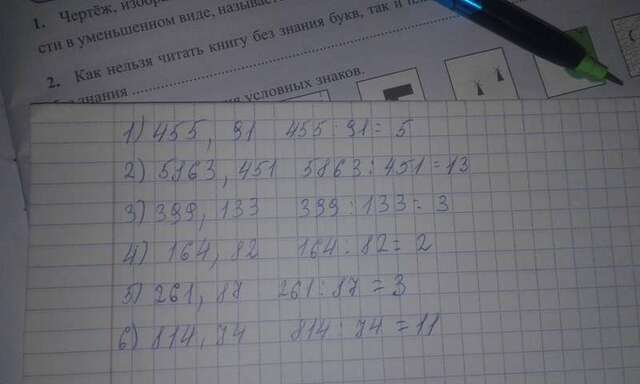 1. Чертёж, изобр
сти в уменьшенном виде, назыв
2. Как нельзя читать книгу без знания букв, так и
знания
условных знаков.
1) 455, 91 455 91 = 5
2) 5863, 451 5863 : 451 = 13
3) 399, 133 399 : 133 = 3
4) 164, 82 164 : 82 = 2
5) 261, 87 261 : 87 = 3
6) 814, 74 814 : 74 = 11